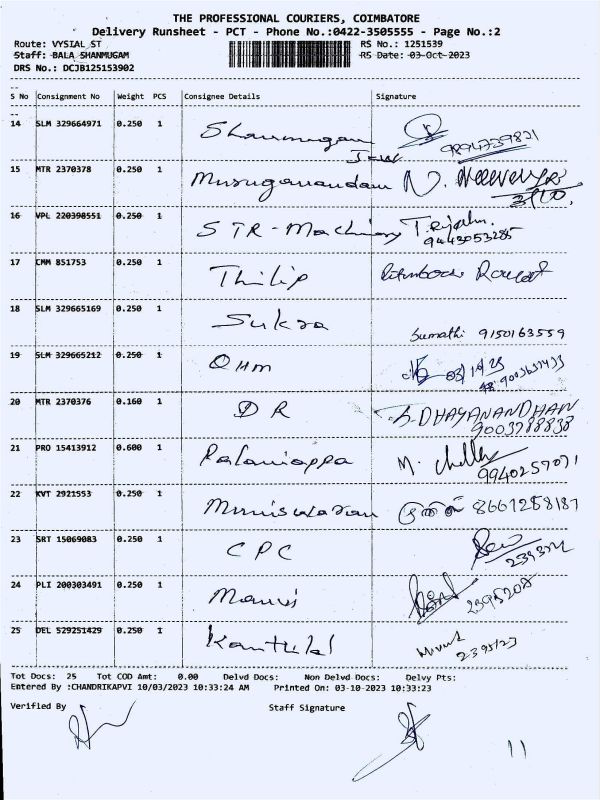 THE PROFESSIONAL COURIERS, COIMBATORE
Delivery Runsheet - PCT - Phone No.:0422-3505555 - Page No.:2
Route: VYSIAL ST RS No.: 1251539
Staff: BALA SHANMUGAM RS Date: 03-Oct-2023
DRS No.: DCJB125153902
S No Consignment No Weight PCS Consignee Details Signature
14 SLM 329664971 0.250 1 Shanmugam 9894739821
15 MTR 2370378 0.250 1 Muruganandam N.
16 VPL 220398551 0.250 1 STR-Machinary 9443053285
17 CMM 851753 0.250 1 Thilip
18 SLM 329665169 0.250 1 Sukra Sumathi 9150163559
19 SLM 329665212 0.250 1 OHM
20 MTR 2370376 0.160 1 DR S.DHAYANANDHAN
9003788838
21 PRO 15413912 0.600 1 Palaniappa M.
9940257071
22 KVT 2921553 0.250 1 Muniswaran 8661258187
23 SRT 15069083 0.250 1 CPC
24 PLI 200303491 0.250 1 2395208
25 DEL 529251429 0.250 1 Kantilal 2395123
Tot Docs: 25 Tot COD Amt: 0.00 Delvd Docs: Non Delvd Docs: Delvy Pts:
Entered By :CHANDRIKAPVI 10/03/2023 10:33:24 AM Printed On: 03-10-2023 10:33:23
Verified By Staff Signature
11